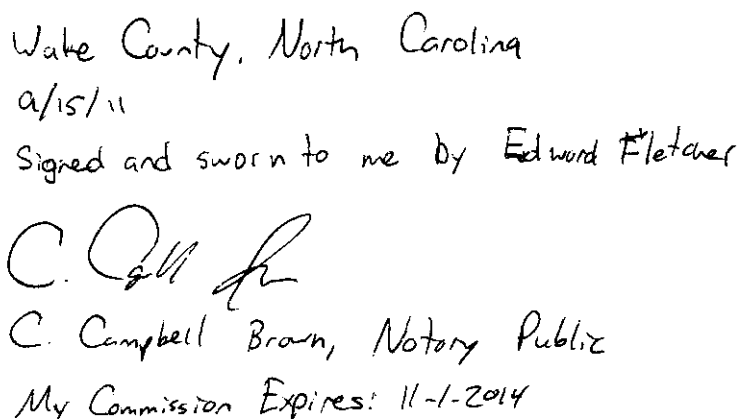 Wake County, North Carolina
9/15/11
Signed and sworn to me by Edward Fletcher
C.
C. Campbell Brown, Notary Public
My Commission Expires: 11-1-2014